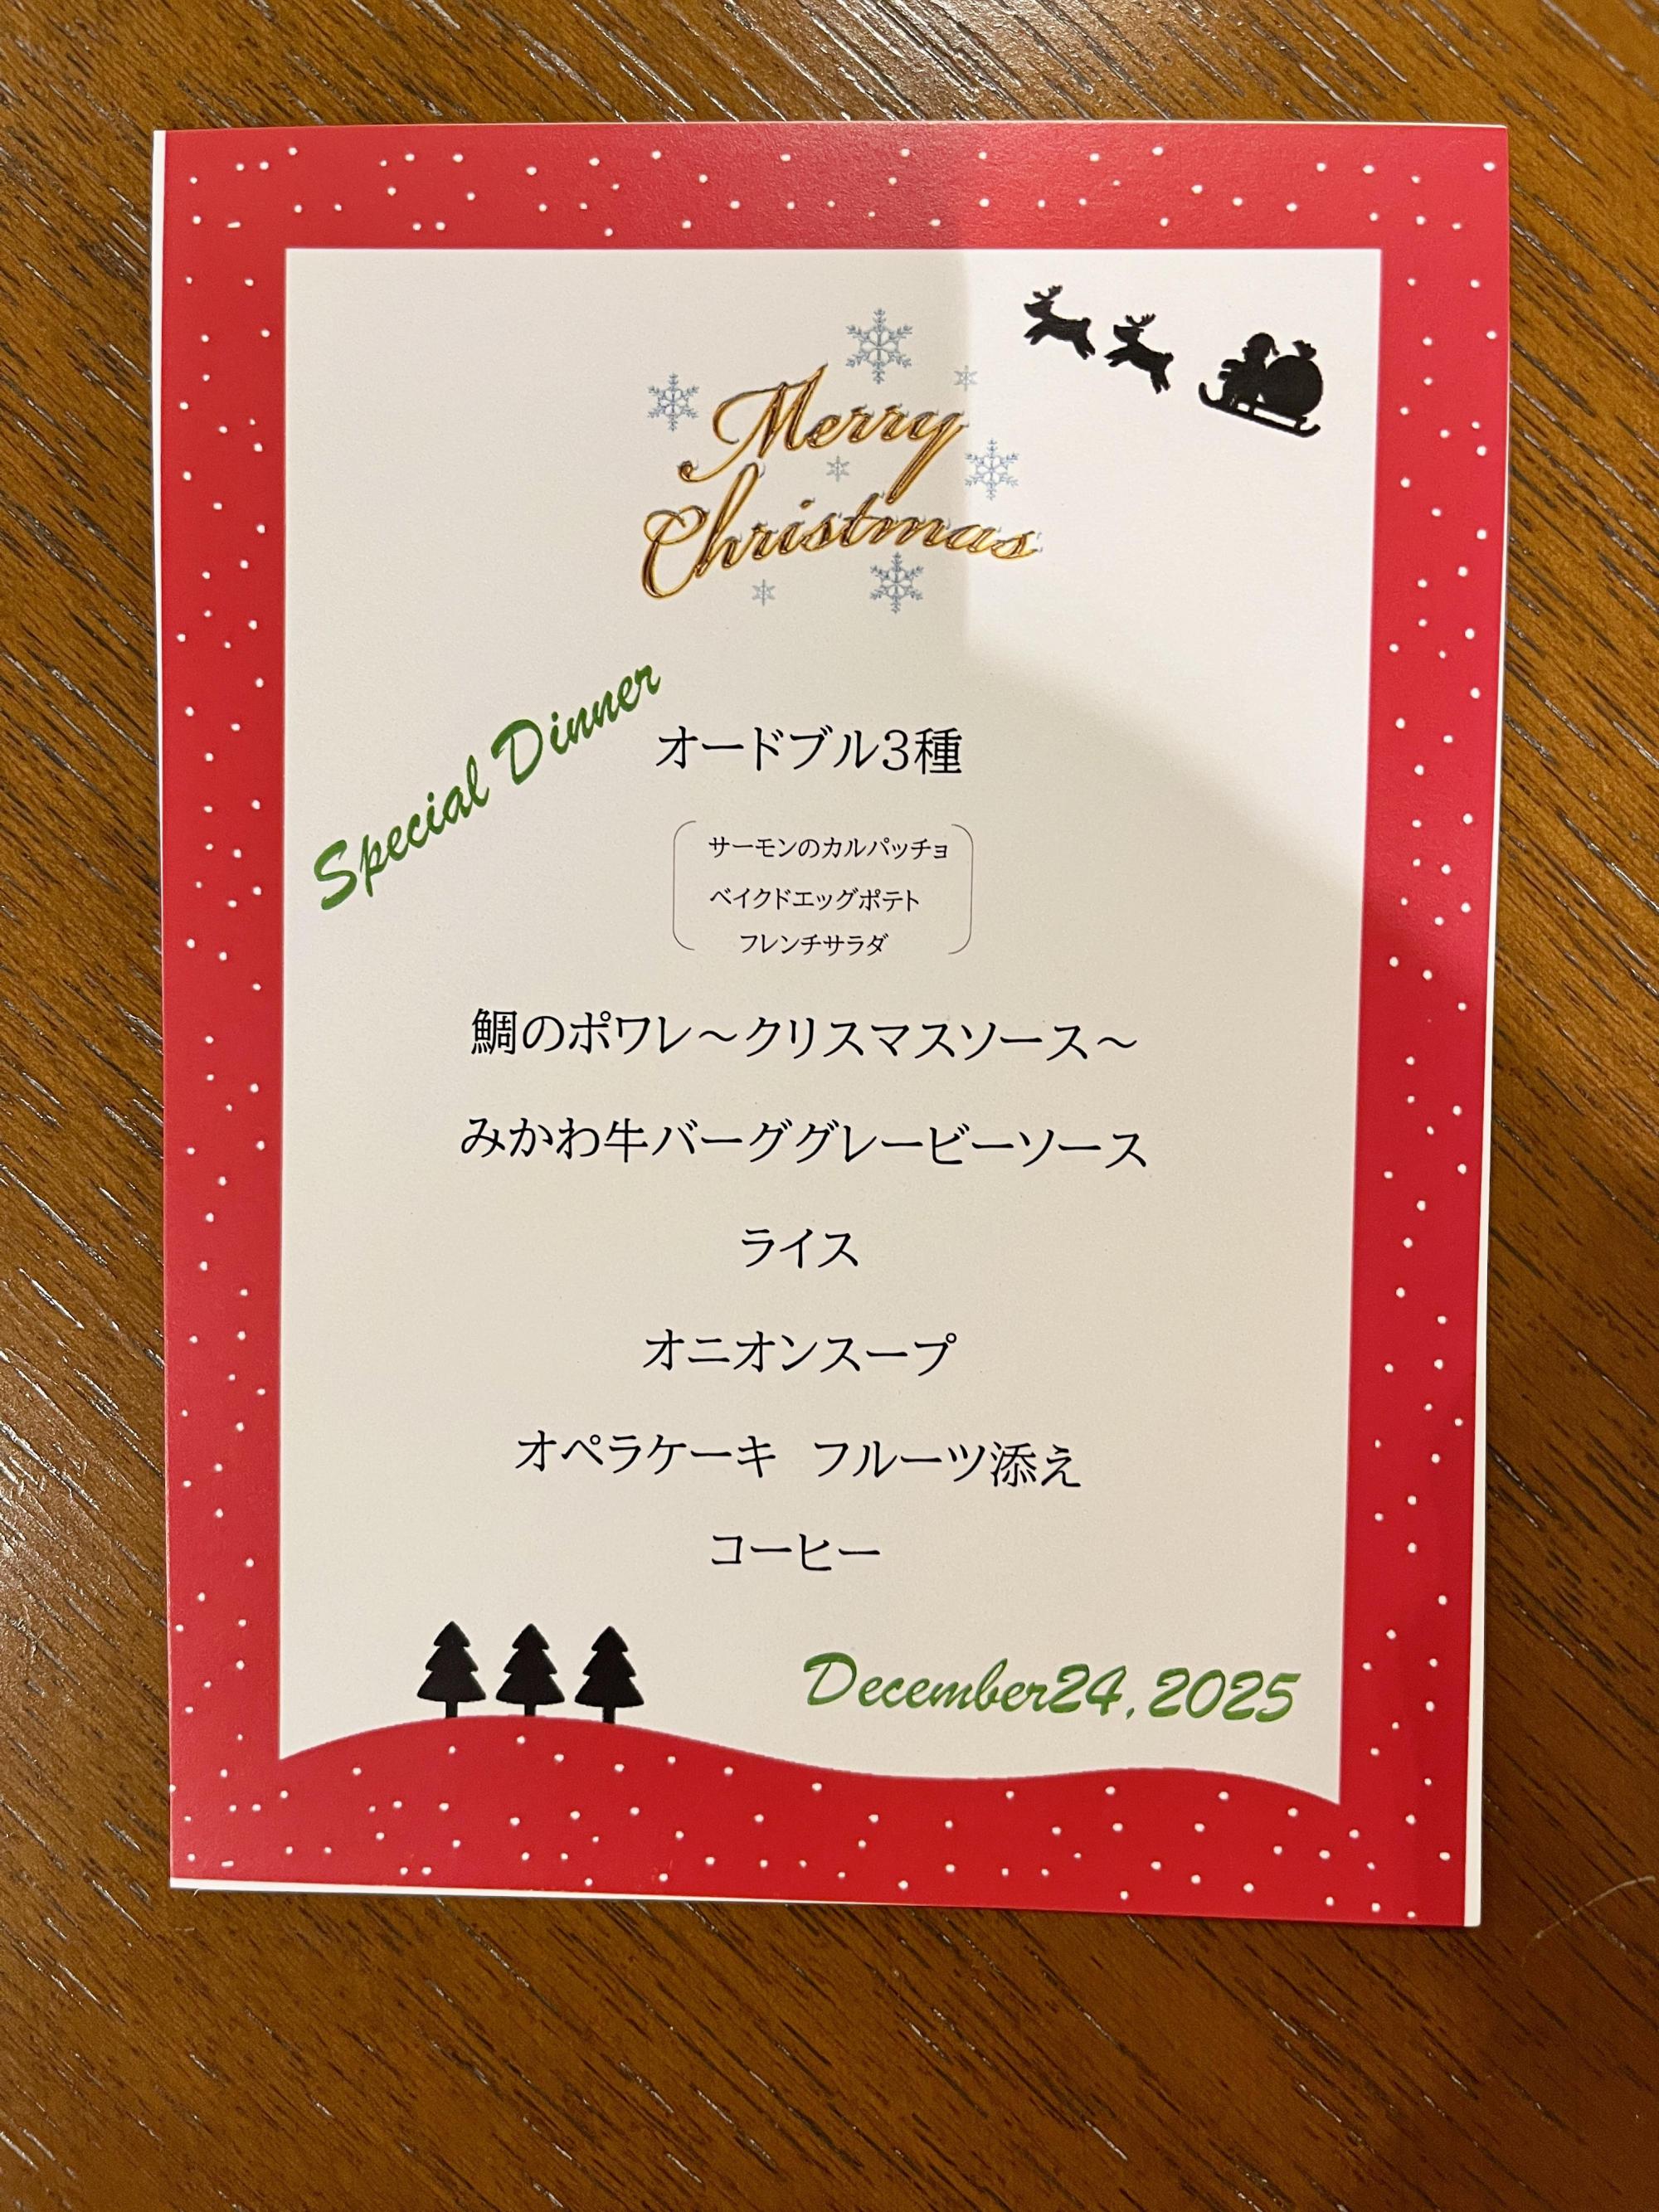 Merry
Christmas
Special Dinner
オードブル3種
サーモンのカルパッチョ
ベイクドエッグポテト
フレンチサラダ
鯛のポワレ～クリスマスソース～
みかわ牛バーググレービーソース
ライス
オニオンスープ
オペラケーキ フルーツ添え
コーヒー
December24,2025